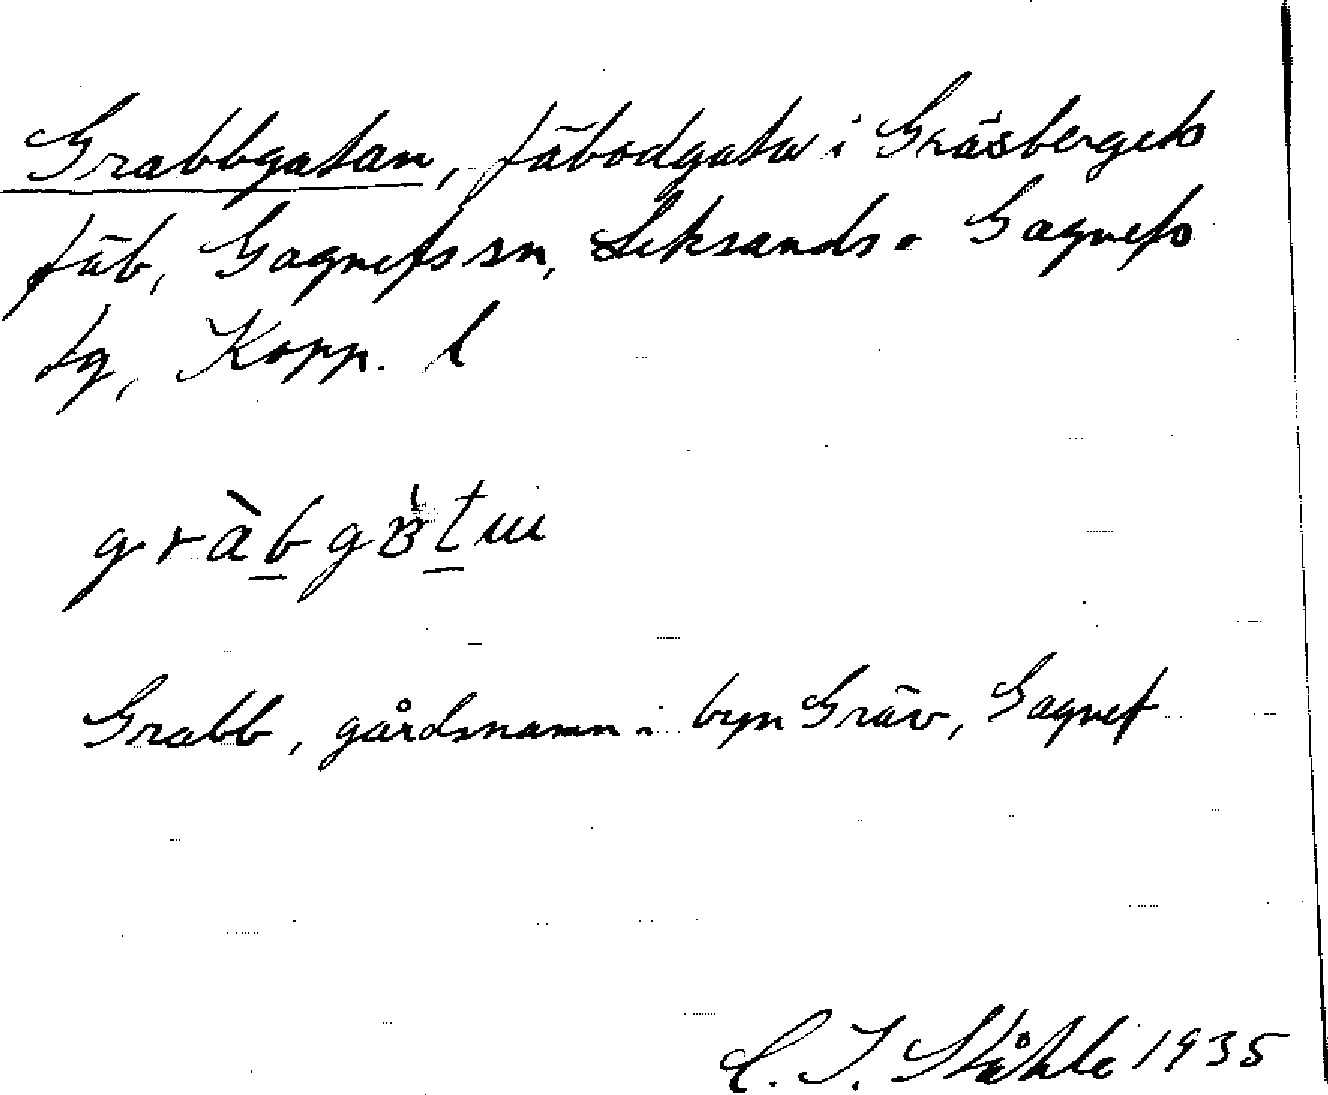 Grabbgatan, fäbodgata i Gräsbergets
fäb, Gagnefs sn, Leksands o Gagnefs
tg, Kopp. l
Grabb, gårdsnamn i byn Gräv, Gagnef
C. I. Ståhle 1935